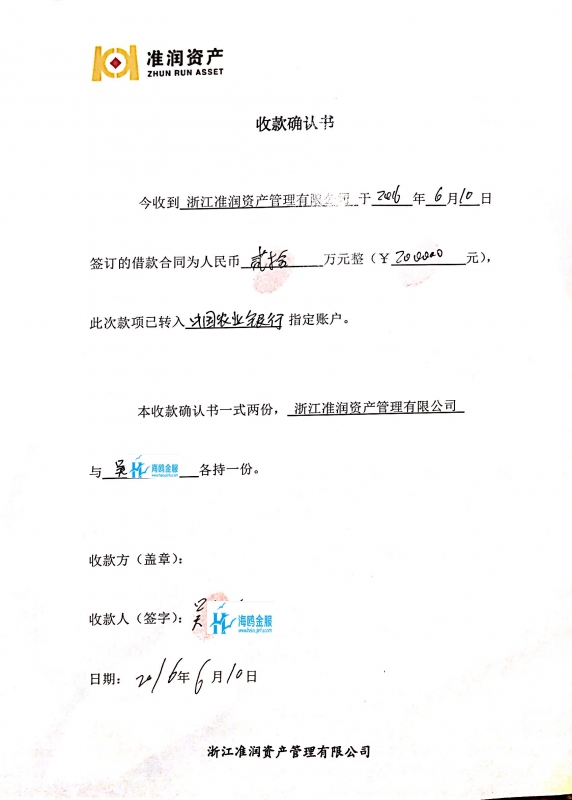 准润资产
ZHUN RUN ASSET
收款确认书
今收到 浙江准润资产管理有限公司 于 2016 年 6 月 10 日
签订的借款合同为人民币 贰拾 万元整（￥ 200000 元），
此次款项已转入 中国农业银行 指定账户。
本收款确认书一式两份， 浙江准润资产管理有限公司
与 吴 海鸥金服 各持一份。
收款方（盖章）：
收款人（签字）： 吴 海鸥金服
日期： 2016年6月10日
浙江准润资产管理有限公司